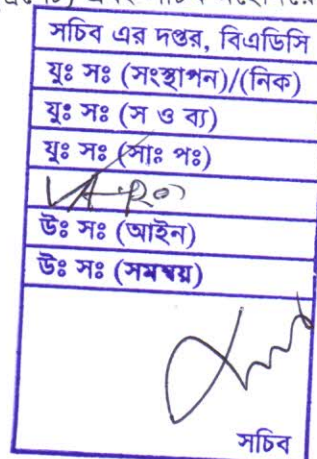 সচিব এর দপ্তর, বিএডিসি
যুঃ সঃ (সংস্থাপন)/(নিক)
যুঃ সঃ (স ও ব্য)
যুঃ সঃ (সাঃ পঃ)
উঃ সঃ (আইন)
উঃ সঃ (সমন্বয়)
সচিব